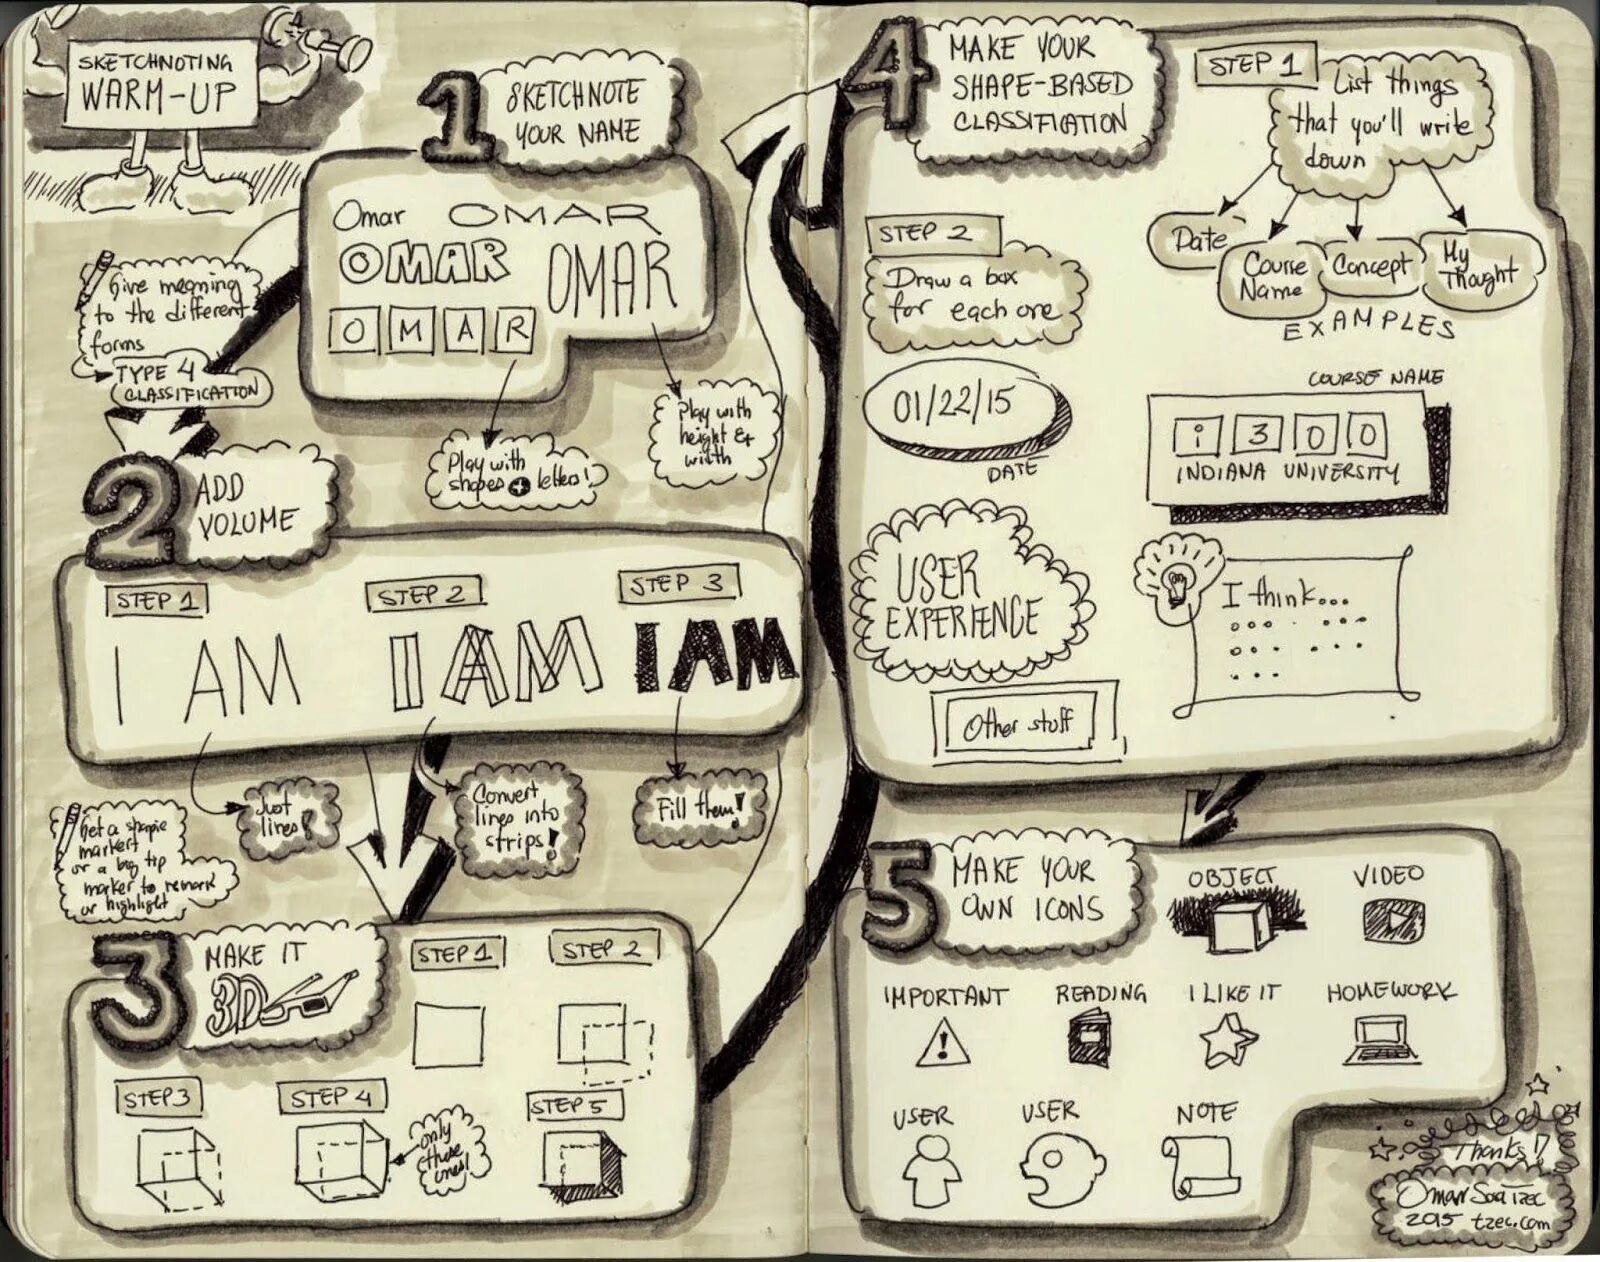 SKETCHNOTING
WARM-UP
1
SKETCHNOTE
YOUR NAME
Omar OMAR
OMAR OMAR
O M A R
Give meaning
to the different
forms
TYPE 4
CLASSIFICATION
Play with
shapes + letters!
Play with
height &
width
2
ADD
VOLUME
STEP 1
I AM
STEP 2
I AM
STEP 3
I AM
Just
lines!
Convert
lines into
strips!
Fill them!
Get a sharpie
marker!
or a big tip
marker to remark
or highlight
3
MAKE IT
3D
STEP 1
STEP 2
STEP 3
STEP 4
only
these
ones!
STEP 5
4
MAKE YOUR
SHAPE-BASED
CLASSIFICATION
STEP 1
List things
that you'll write
down
Date
Course
Name
Concept
My
Thought
EXAMPLES
STEP 2
Draw a box
for each one
01/22/15
DATE
COURSE NAME
i 3 0 0
INDIANA UNIVERSITY
USER
EXPERIENCE
I think...
Other stuff
5
MAKE YOUR
OWN ICONS
OBJECT
VIDEO
IMPORTANT
READING
I LIKE IT
HOMEWORK
USER
USER
NOTE
Thanks!
Omar Sosa Tzec
2015 tzec.com